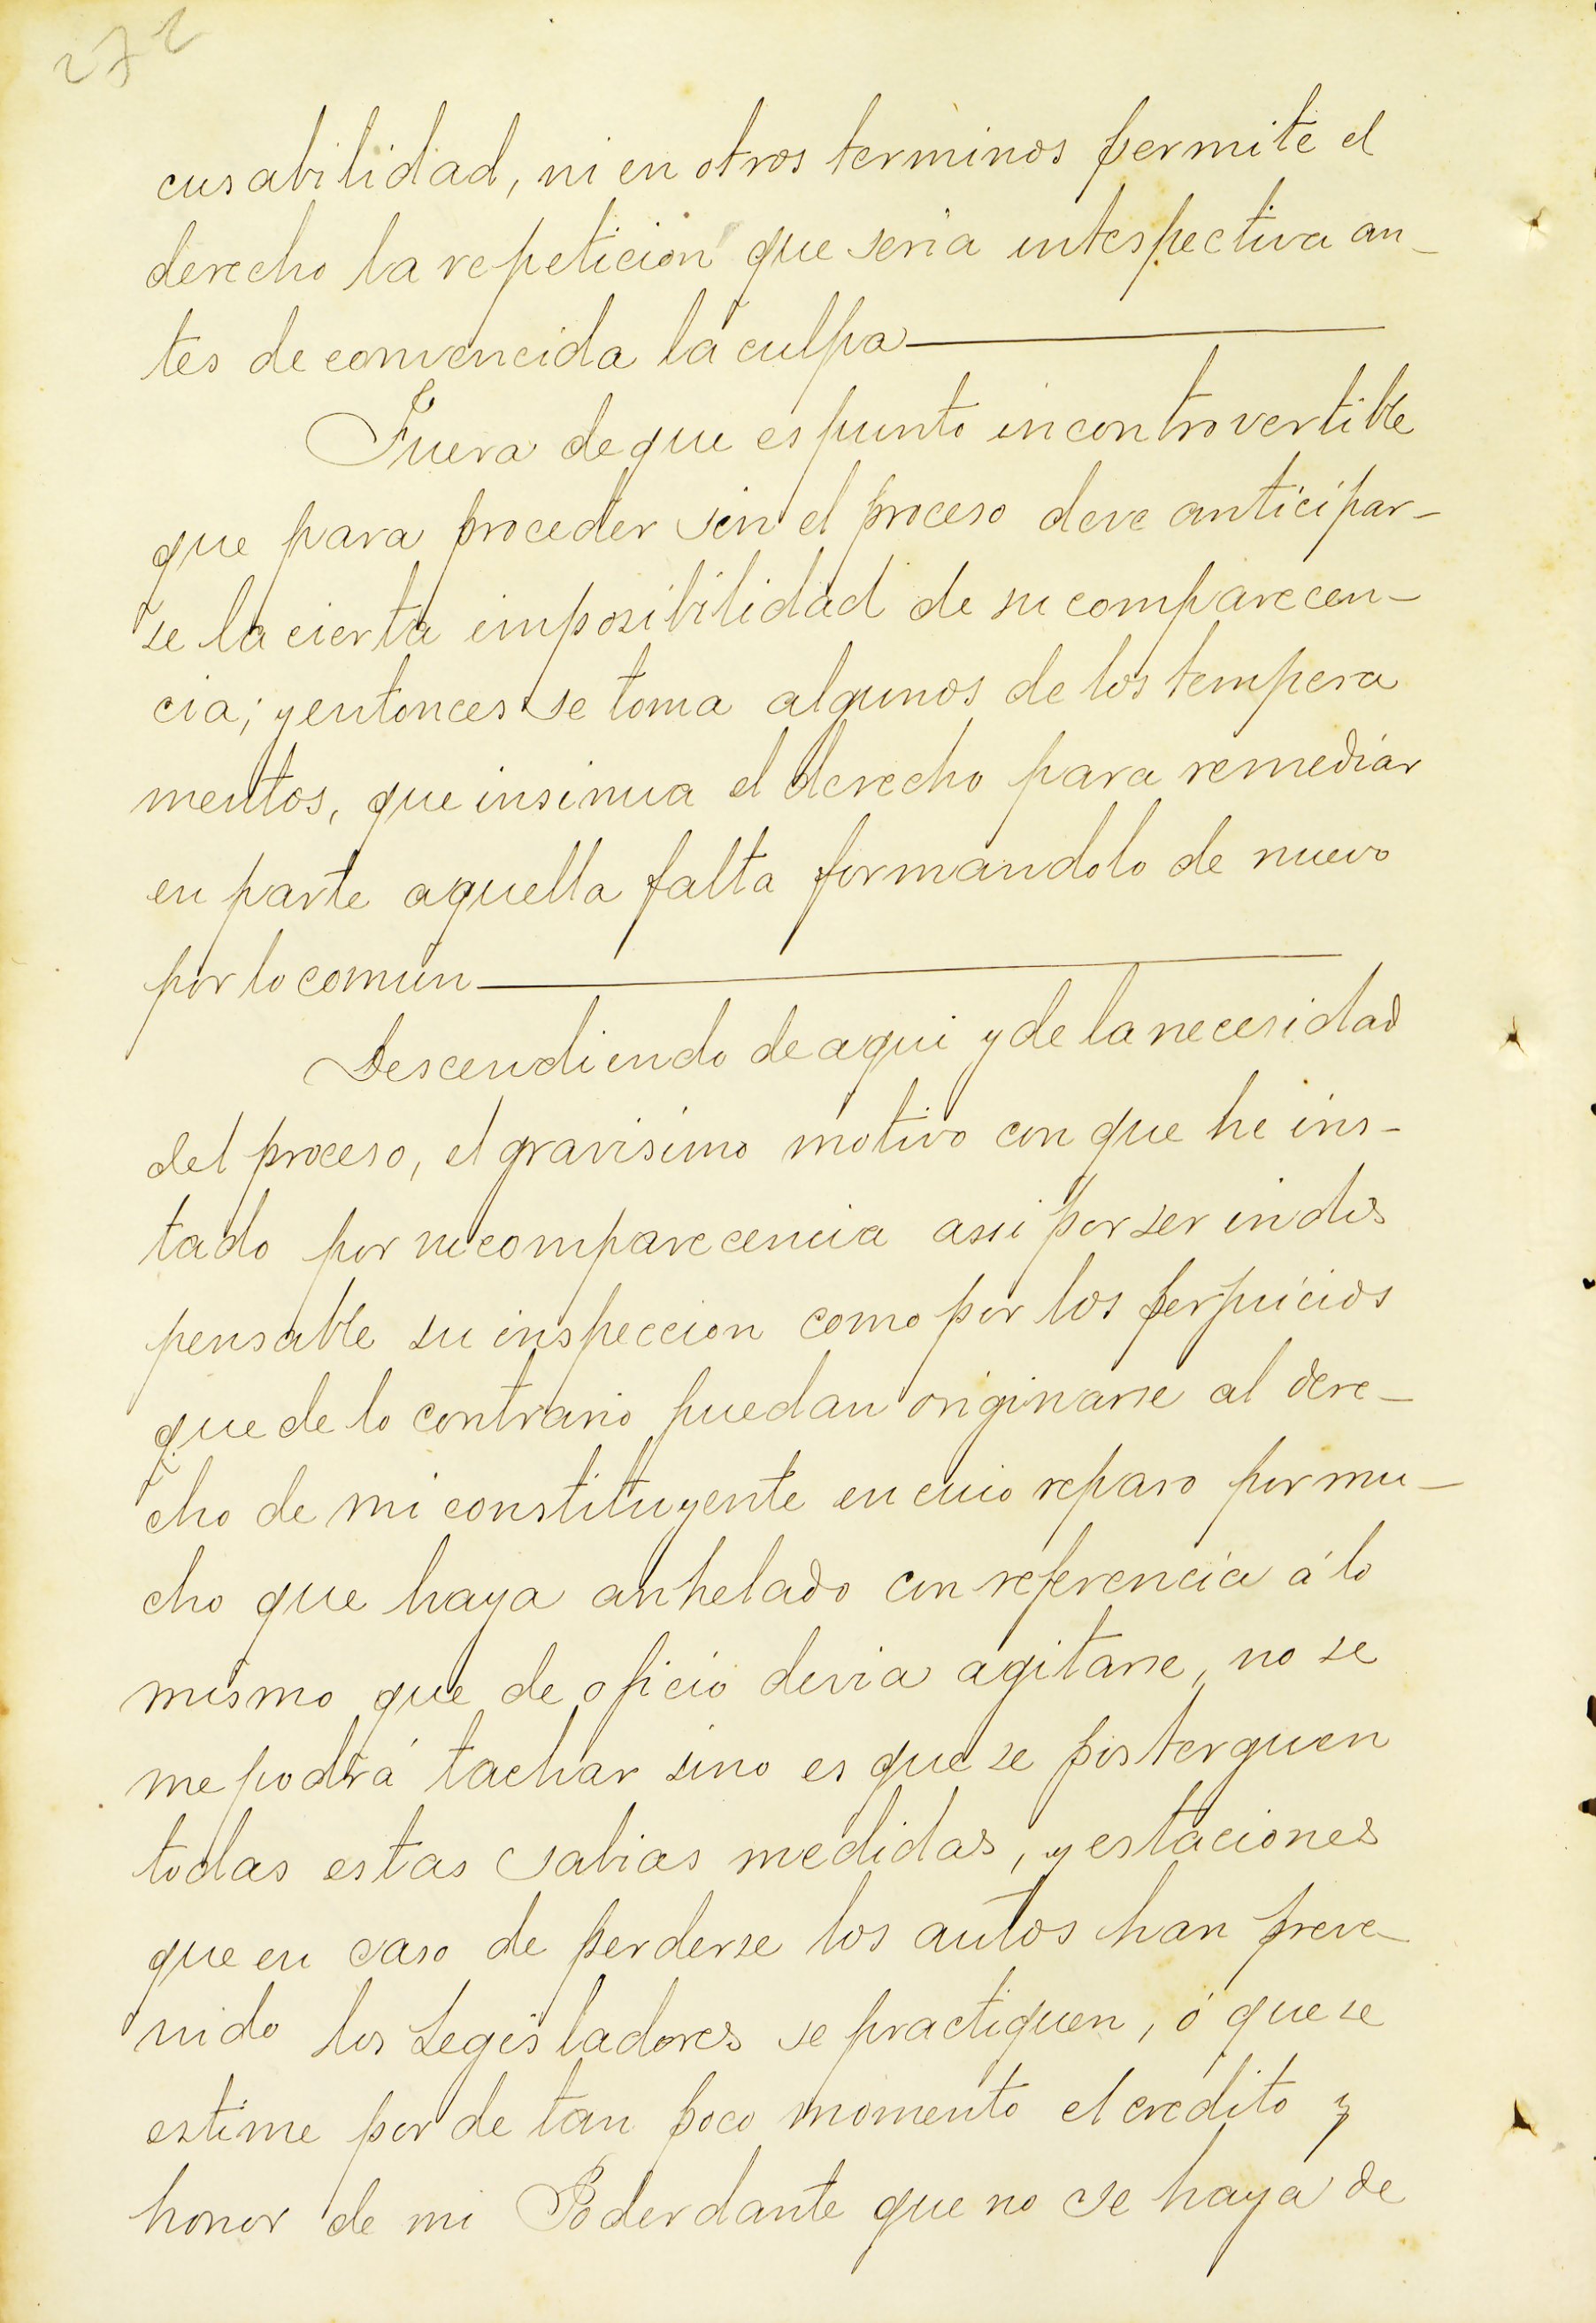 272
cusabilidad, ni en otros terminos permite el
derecho la repeticion que seria intespectiva an-
tes de convencida la culpa
Fuera de que es punto incontrovertible
que para proceder sin el proceso deve anticipar-
se la cierta imposibilidad de su comparecen-
cia; y entonces se toma algunos de los tempera
mentos, que insinua el derecho para remediar
en parte aquella falta formandolo de nuevo
por lo comun
Descendiendo de aqui y de la necesidad
del proceso, el gravisimo motivo con que he ins-
tado por su comparecencia assi por ser indis
pensable su inspeccion como por los perjuicios
que de lo contrario puedan originarse al dere-
cho de mi constituyente en cuio reparo por mu-
cho que haya anhelado con referencia á lo
mismo que de oficio devia agitarse, no se
me podrá tachar sino es que se posterguen
todas estas sabias medidas, y estaciones
que en caso de perderse los autos han preve-
nido los Legisladores se practiquen, ó que se
estime por de tan poco momento el credito y
honor de mi Poderdante que no se haya de